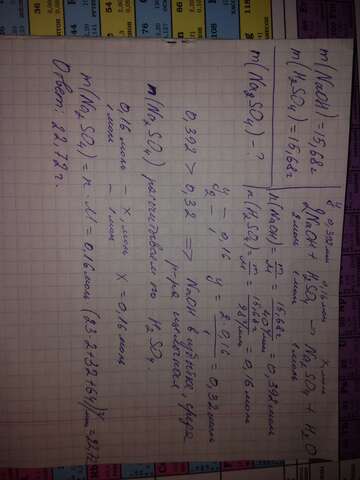 m(NaOH)=15,68г
m(H₂SO₄)=15,68г
m(Na₂SO₄) - ?
y 0,392 моль 0,16 моль x, моль
2NaOH + H₂SO₄ → Na₂SO₄ + H₂O
2 моль 1 моль 1 моль
n(NaOH) = m/M = 15,68г/40г/моль = 0,392 моль
n(H₂SO₄) = m/M = 15,68г/98г/моль = 0,16 моль
y - 0,16
2 - 1
y = 2·0,16/1 = 0,32 моль
0,392 > 0,32 => NaOH в избытке, среда
р-ра щелочная
m(Na₂SO₄) рассчитываем по H₂SO₄.
0,16 моль - x, моль x = 0,16 моль
1 моль - 1 моль
m(Na₂SO₄) = n·M = 0,16 моль (23·2+32+64) г/моль = 22,72
Ответ: 22,72 г.